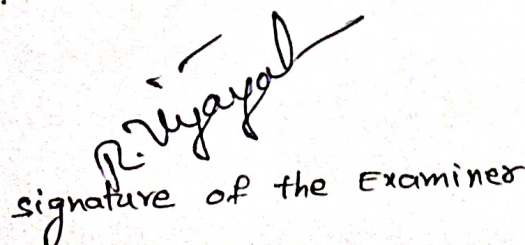 R. Vijayal
signature of the Examiner